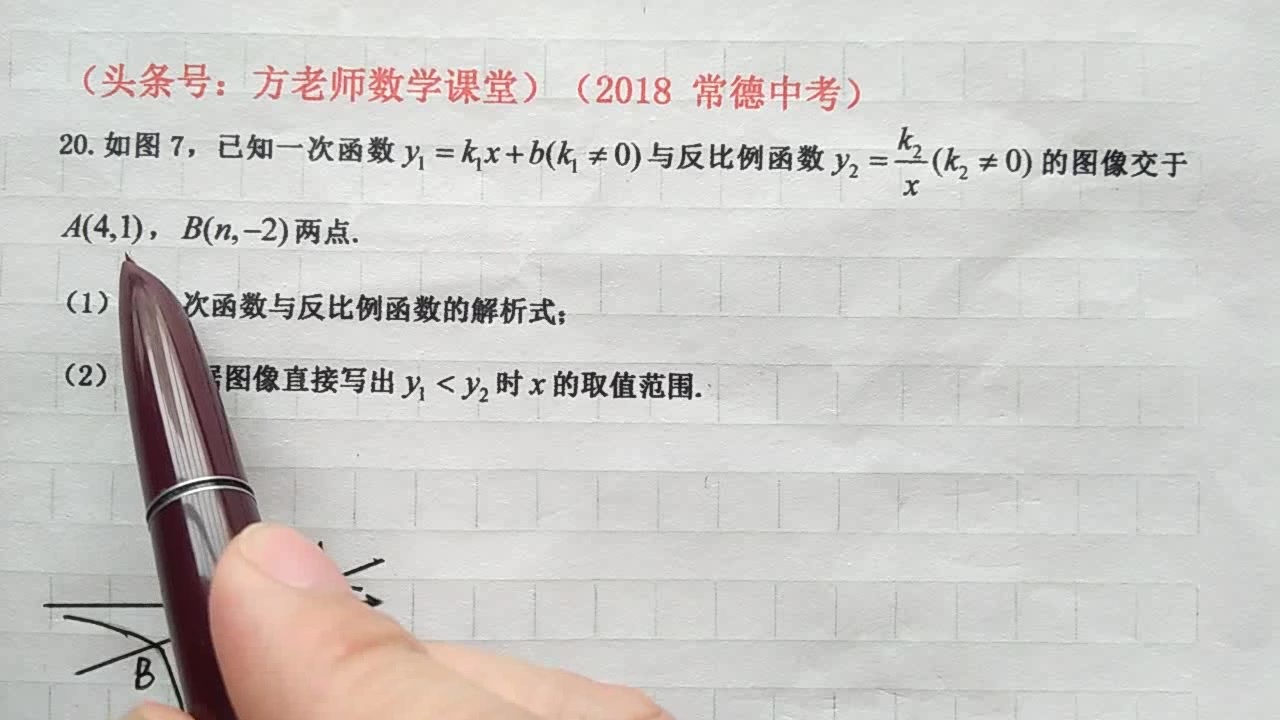 （头条号：方老师数学课堂）（2018 常德中考）
20. 如图 7，已知一次函数 y₁ = k₁x + b(k₁ ≠ 0) 与反比例函数 y₂ = k₂/x (k₂ ≠ 0) 的图像交于
A(4,1)，B(n,−2) 两点.
（1） 次函数与反比例函数的解析式；
（2） 图像直接写出 y₁ < y₂ 时 x 的取值范围.
B